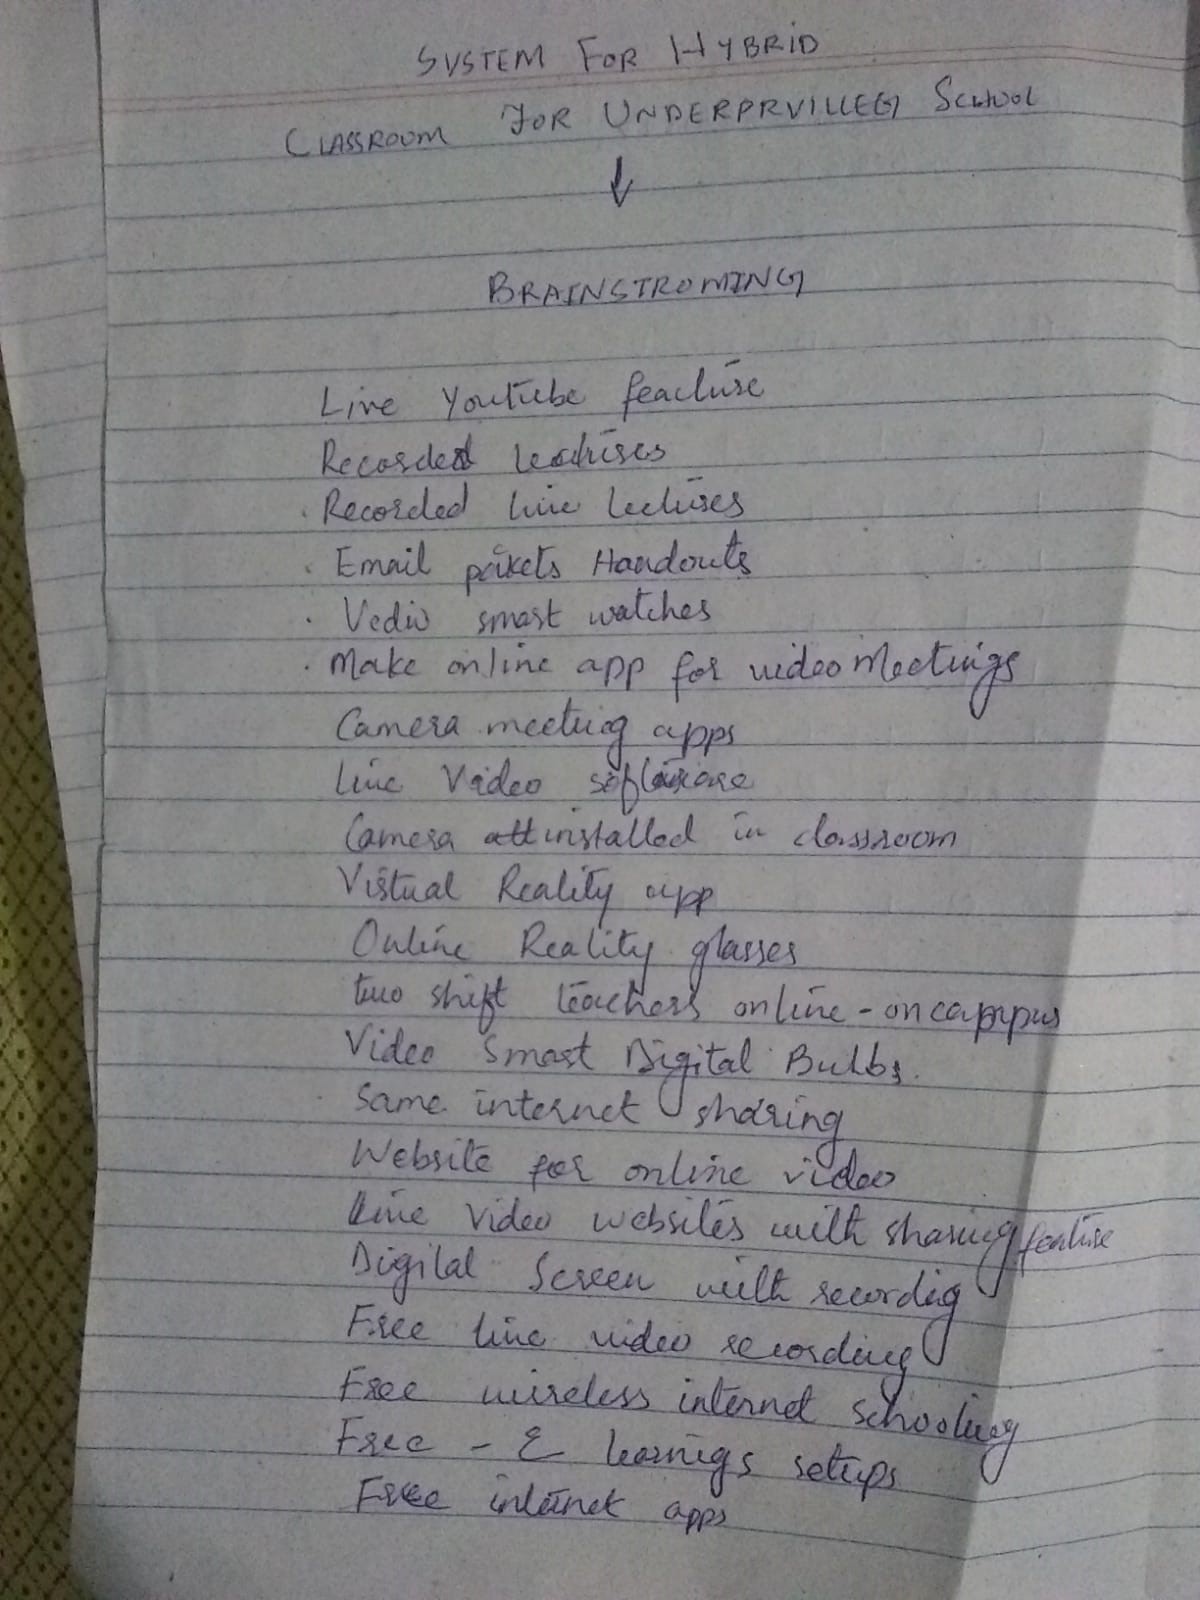 SYSTEM FOR HYBRID
CLASSROOM FOR UNDERPRVILLEG SCHOOL
↓
BRAINSTROMING
Live Youtube feacture
Recorded lectures
. Recorded live lectures
. Email pakets Handouts
. Vedio smart watches
. Make online app for video Meetings
Camera meeting apps
Live Video software
Camera installed in classroom
Virtual Reality app
Online Reality glasses
two shift teachers online - on campus
Video Smart Digital Bulbs.
Same internet sharing
Website for online video
Live Video websites with sharing feature
Digital Screen with recording
Free live video recording
Free wireless internet schooling
Free - E learnigs setups
Free internet apps